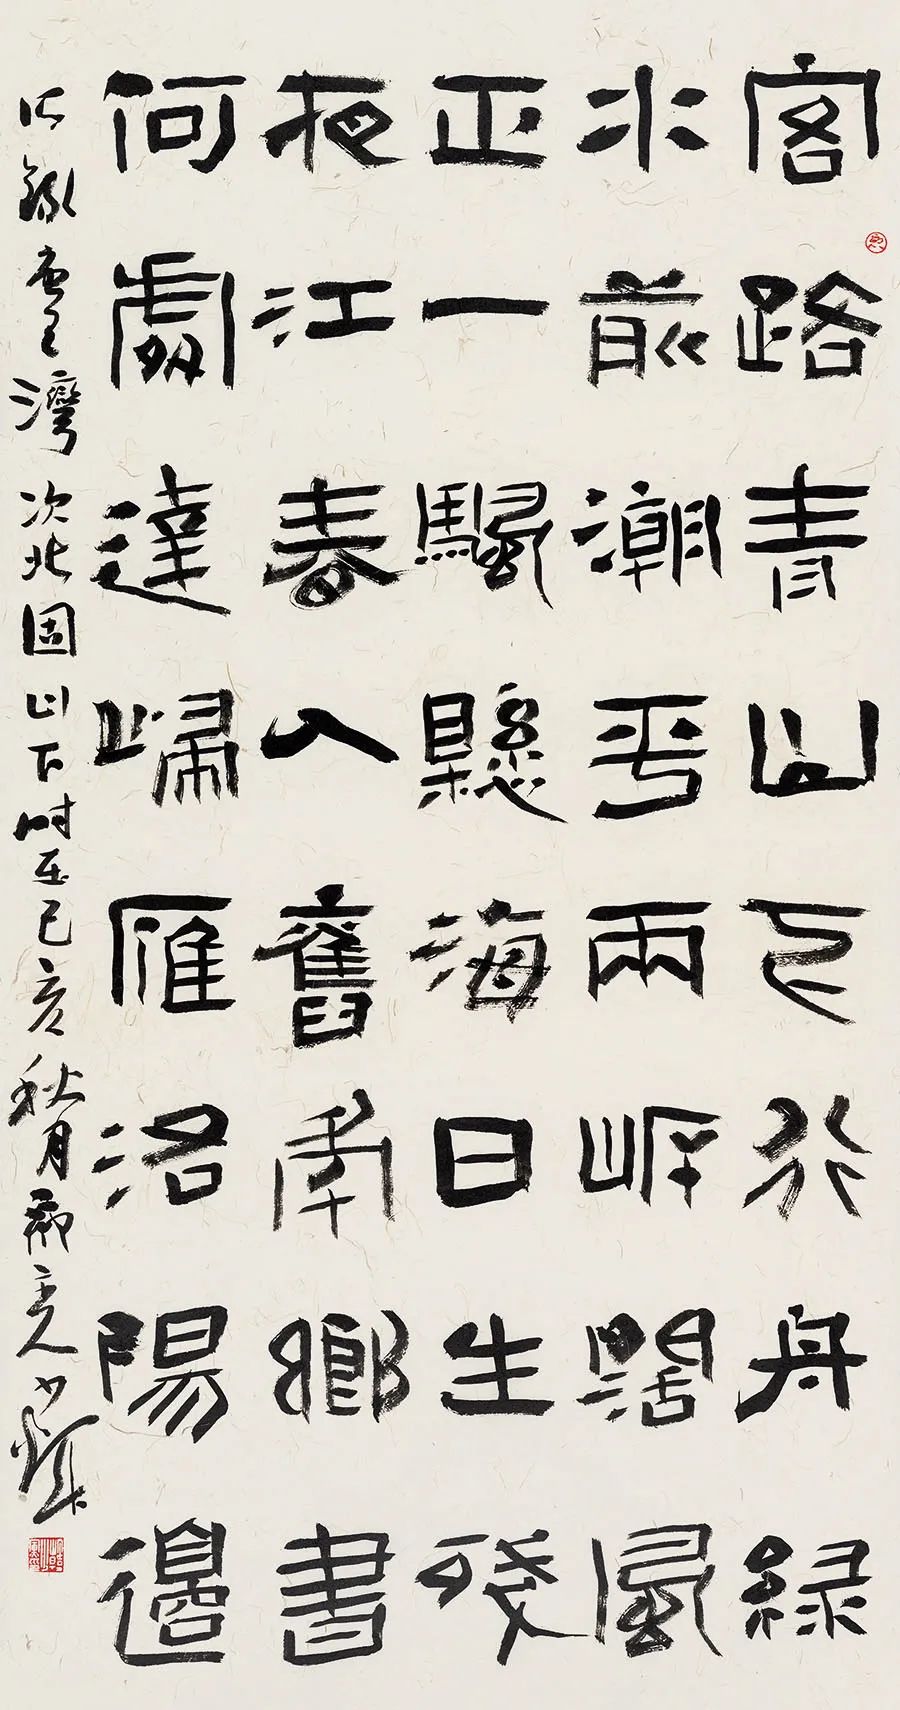 客路青山下行舟綠
水前潮平兩岸闊風
正一颿懸海日生殘
夜江春入舊年鄉書
何處達歸雁洛陽邊
錄唐王灣次北固山下時在己亥秋月